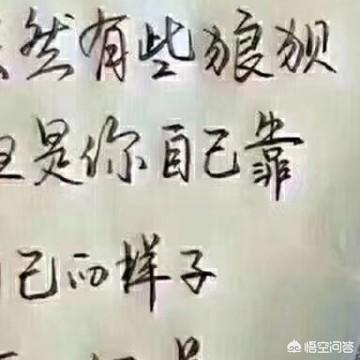 然有些狼狈
是你自己靠
己的样子
悟空问答